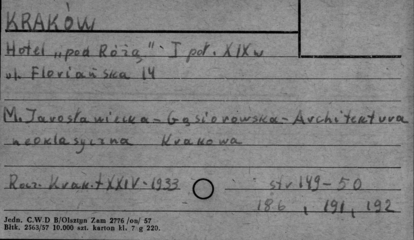 KRAKÓW
Hotel „pod Różą" · I poł. XIX w
ul. Floriańska 14
M. Jarosławiecka - Gąsiorowska - Architektura
neoklasyczna Krakowa
Rocz. Krak. t XXIV - 1933 str 149 - 50
186, 191, 192
Jedn. C.W.D B/Olsztyn Zam 2776/on/ 57
Bltk. 2563/57 10.000 szt. karton kl. 7 g 220.